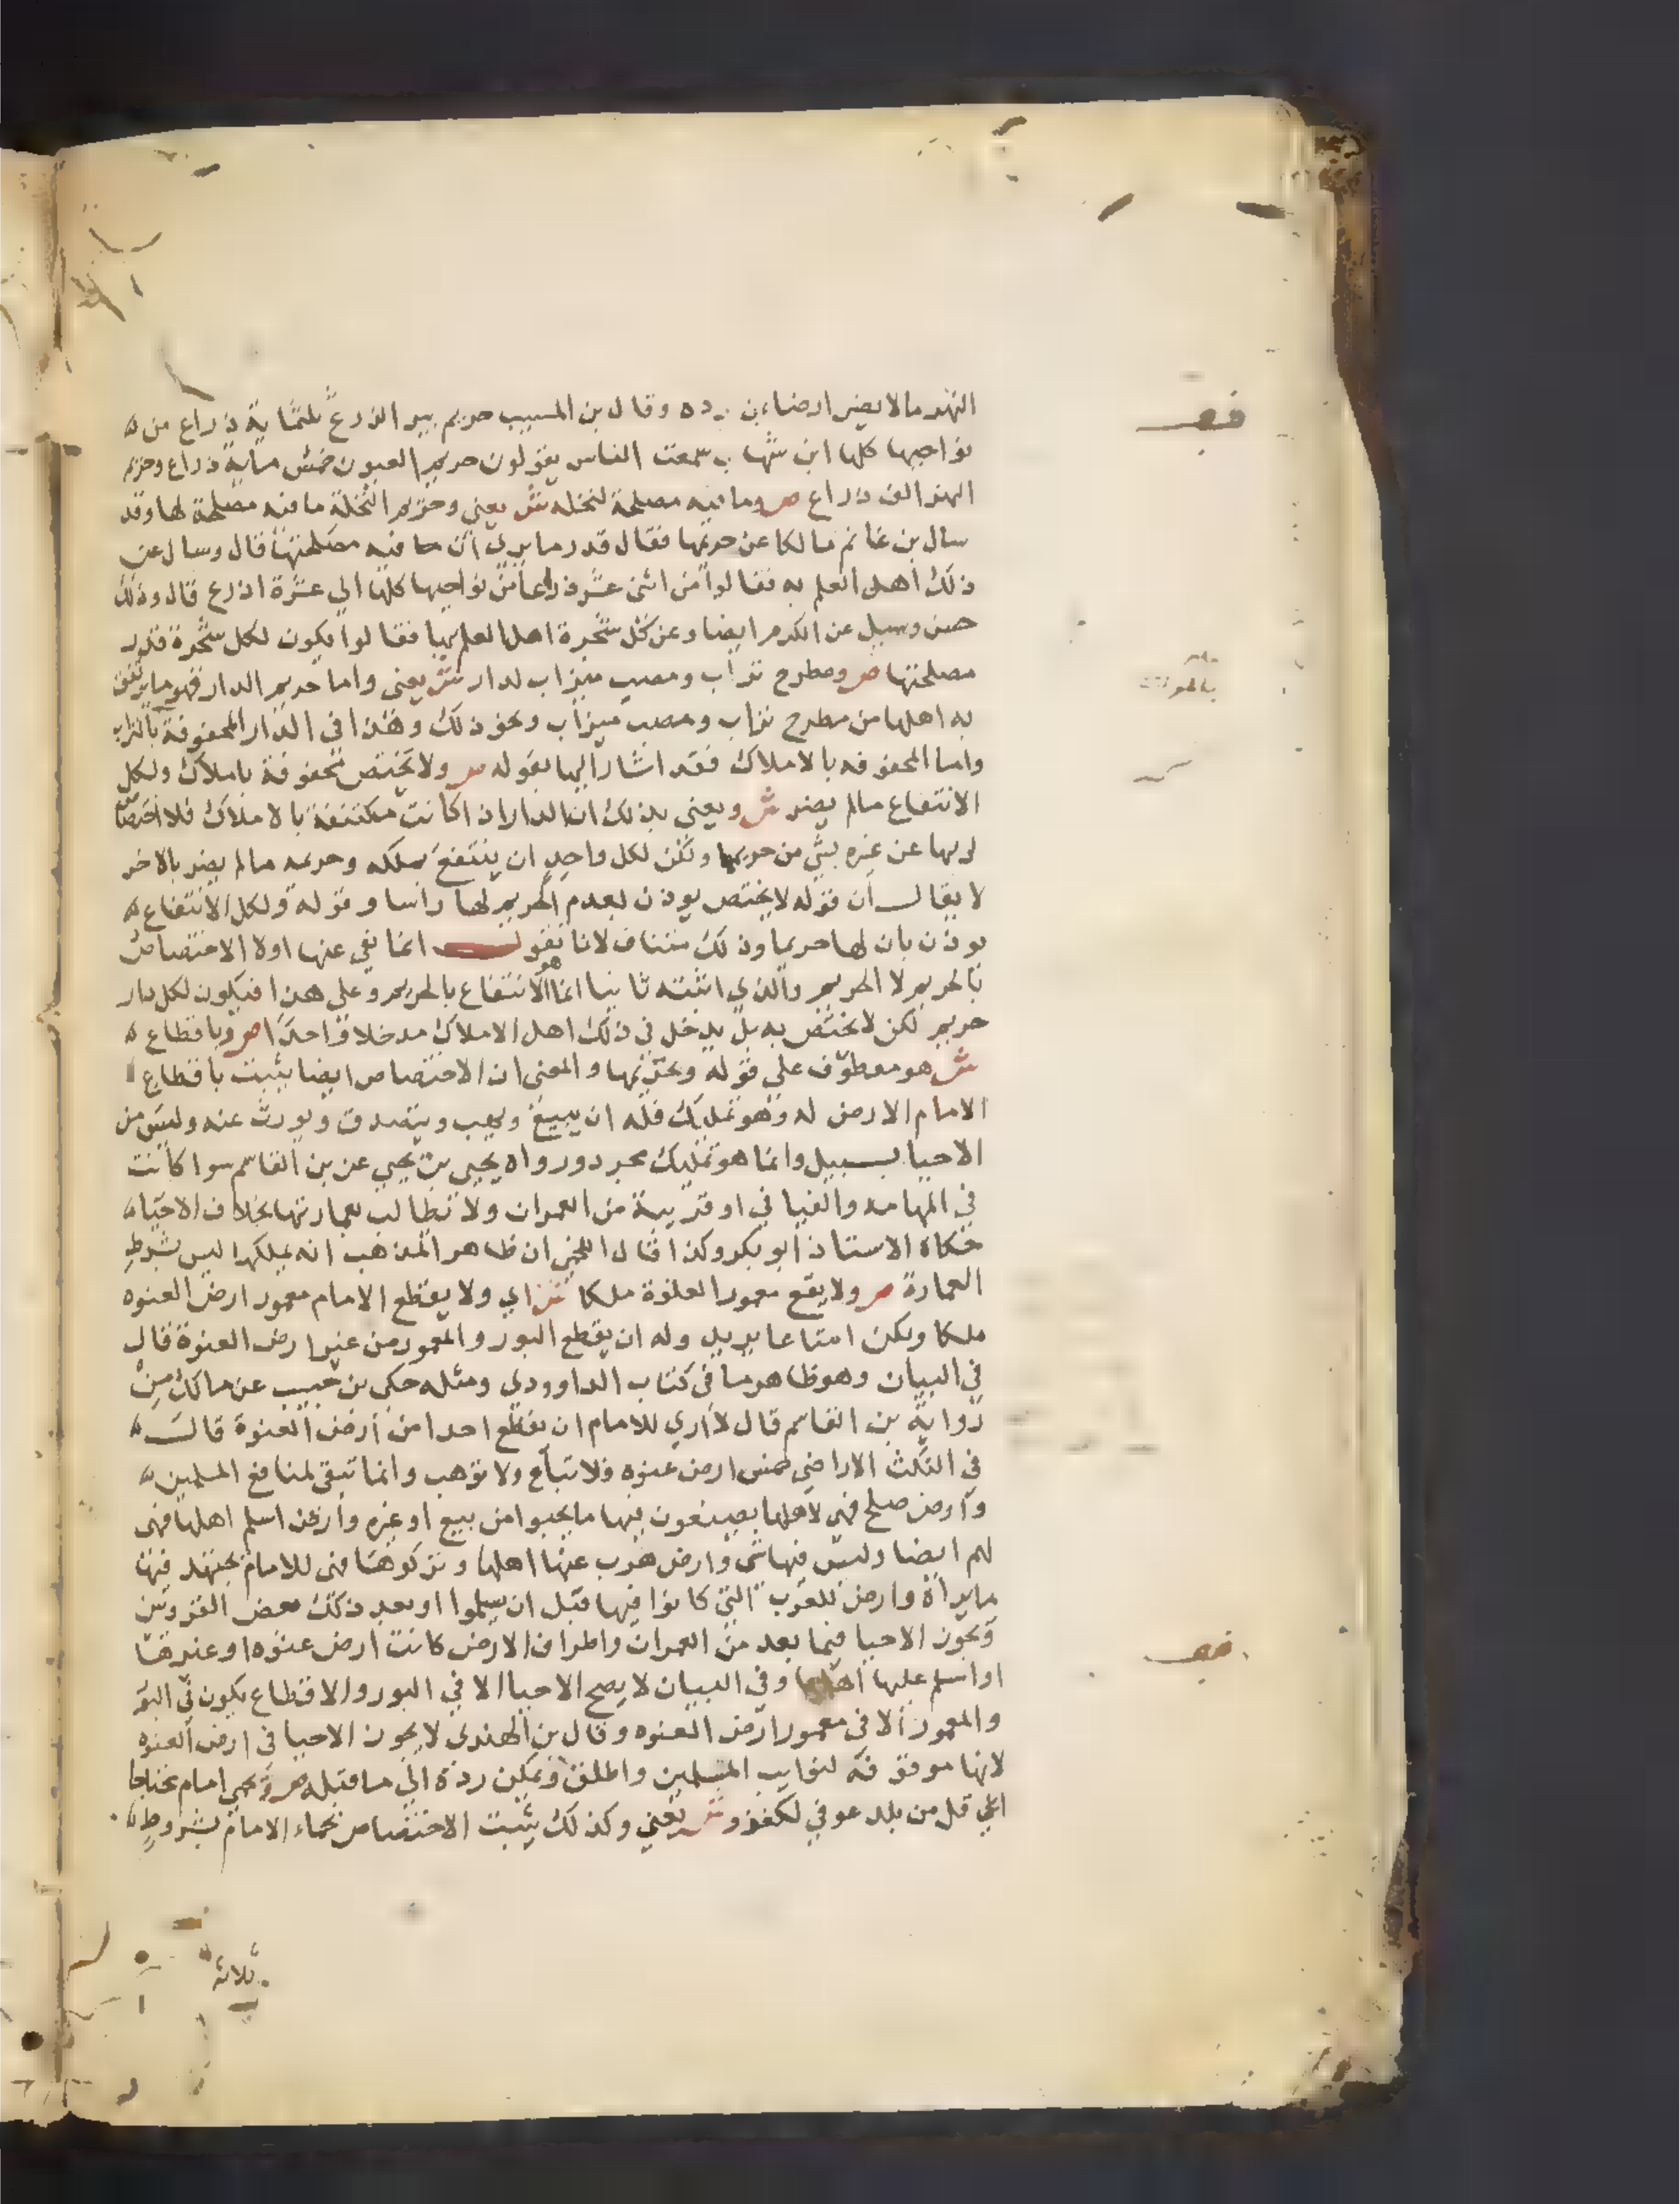 النهر مالا يضر ارضاء بن وقال بن المسيب حريم بير الزرع ثلثماية ذراع من
نواحيها كلها ابن شهاب سمعت الناس يقولون حريم العيون خمس ماية ذراع وحريم
النهر الف ذراع ص وما فيه مصلحة لنخله ش يعني وحريم النخلة ما فيه مصلحة لها وقد
سال بن غانم مالكا عن حريمها فقال قدر ما يري ان ما فيه مصلحتها قال وسال عن
ذلك اهل العلم به فقالوا من اثنى عشر ذراعا من نواحيها كلها الي عشرة اذرع قال وذلك
حسن وسيل عن الكرم ايضا وعن كل شجرة اهل العلم بها فقالوا يكون لكل شجرة قدر
مصلحتها ص ومطرح تراب ومصب ميزاب لدار ش يعنى واما حريم الدار فهو ما يرتفق
به اهلها من مطرح تراب ومصب ميزاب ونحو ذلك وهذا في الدار المحفوفة بالتراب
واما المحفوفه بالاملاك فقد اشار اليها بقوله ص ولا تختص محفوفة باملاك ولكل
الانتفاع مالم يضر ش ويعني بذلك ان الدار اذا كانت مكتنفة بالاملاك فلا اختصاص
لربها عن غيره بشي من حريمها ولكن لكل واحد ان ينتفع بملكه وحريمه مالم يضر بالاخر
لا يقال ان قوله لا يختص يوذن بعدم الحريم لها راسا وقوله ولكل الانتفاع
يوذن بان لها حريما وذلك متناف لانا نقول انما نفي عنها اولا الاختصاص
بالحريم لا الحريم والذي اثبته ثانيا انما هو الانتفاع بالحريم وعلى هذا فيكون لكل دار
حريم لكن لا يختص به بل يدخل في ذلك اهل الاملاك مدخلا واحدا ص وباقطاع
ش هو معطوف على قوله وبحريمها والمعنى ان الاختصاص ايضا يثبت باقطاع
الامام الارض له وهو تمليك فله ان يبيع ويهب ويتصدق ويورث عنه وليس من
الاحيا بسبيل وانما هو تمليك مجرد ورواه يحيى بن يحيى عن بن القاسم سوا كانت
في المهامه والفيافي او قريبة من العمران ولا تطالب بعمارتها بخلاف الاحيا
حكاه الاستاذ ابو بكر وكذا قال اللخمي ان ظاهر المذهب انه يملكها ليس بشرط
العمارة ص ولا يقع معمور العنوة ملكا ش اي ولا يقطع الامام معمور ارض العنوه
ملكا ولكن امتاعا يريد وله ان يقطع البور والمعمور من غير ارض العنوة قال
في البيان وهو ظاهر ما في كتاب الداوودي ومثله حكى بن حبيب عن مالك من
رواية بن القاسم قال لا اري للامام ان يقطع احدا من ارض العنوة قال
في النكت الاراضي خمس ارض عنوه فلا تباع ولا توهب وانما تبقى لمنافع المسلمين
وارض صلح فهي لاهلها يصنعون فيها ما يحبوا من بيع او غيره وارض اسلم اهلها فهي
لهم ايضا وليس فيها شي وارض هرب عنها اهلها وتركوها فهي للامام يجتهد فيها
ما يراه وارض للعرب التي كانوا فيها قبل ان يسلموا او بعد ذلك بعض القرويين
ويجوز الاحيا فيما بعد من العمران واطراف الارض كانت ارض عنوه او غيرها
او اسلم عليها اهلها وفي البيان لا يصح الاحيا الا في البور والاقطاع يكون في البور
والمعمور الا في معمور ارض العنوه وقال بن الهندي لا يجوز الاحيا في ارض العنوه
لانها موقوفة لنوايب المسلمين واطلق ويمكن رده الي ما قبله ص وبحمي امام محتاجا
الي قل من بلد عو في لكغزو ش يعني وكذلك يثبت الاختصاص بحماء الامام بشروط
ثلاثة